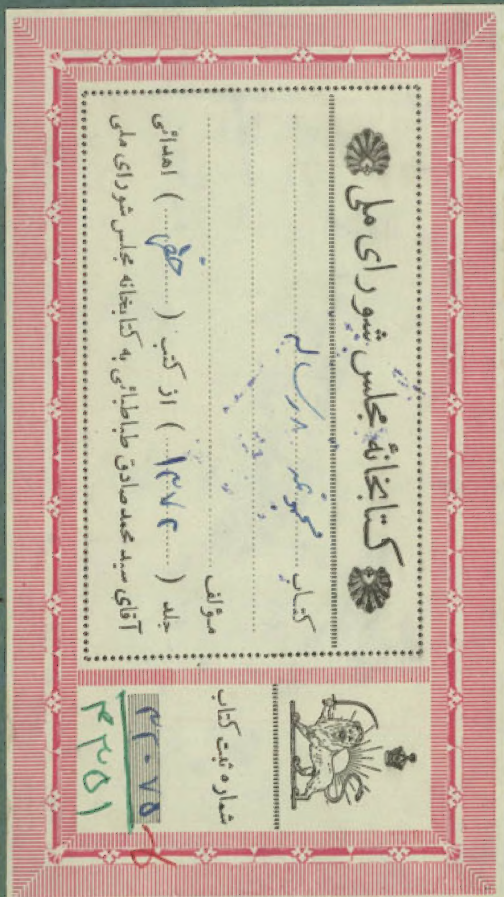 کتابخانهٔ مجلس شورای ملی
کتاب مجموعه ۸ رساله
مؤلف
جلد (۱۳۷۴) از کتب (خطی) اهدائی
آقای سید محمد صادق طباطبائی به کتابخانه مجلس شورای ملی
شماره ثبت کتاب
۴۲۰۷۵
۴۳۵۱